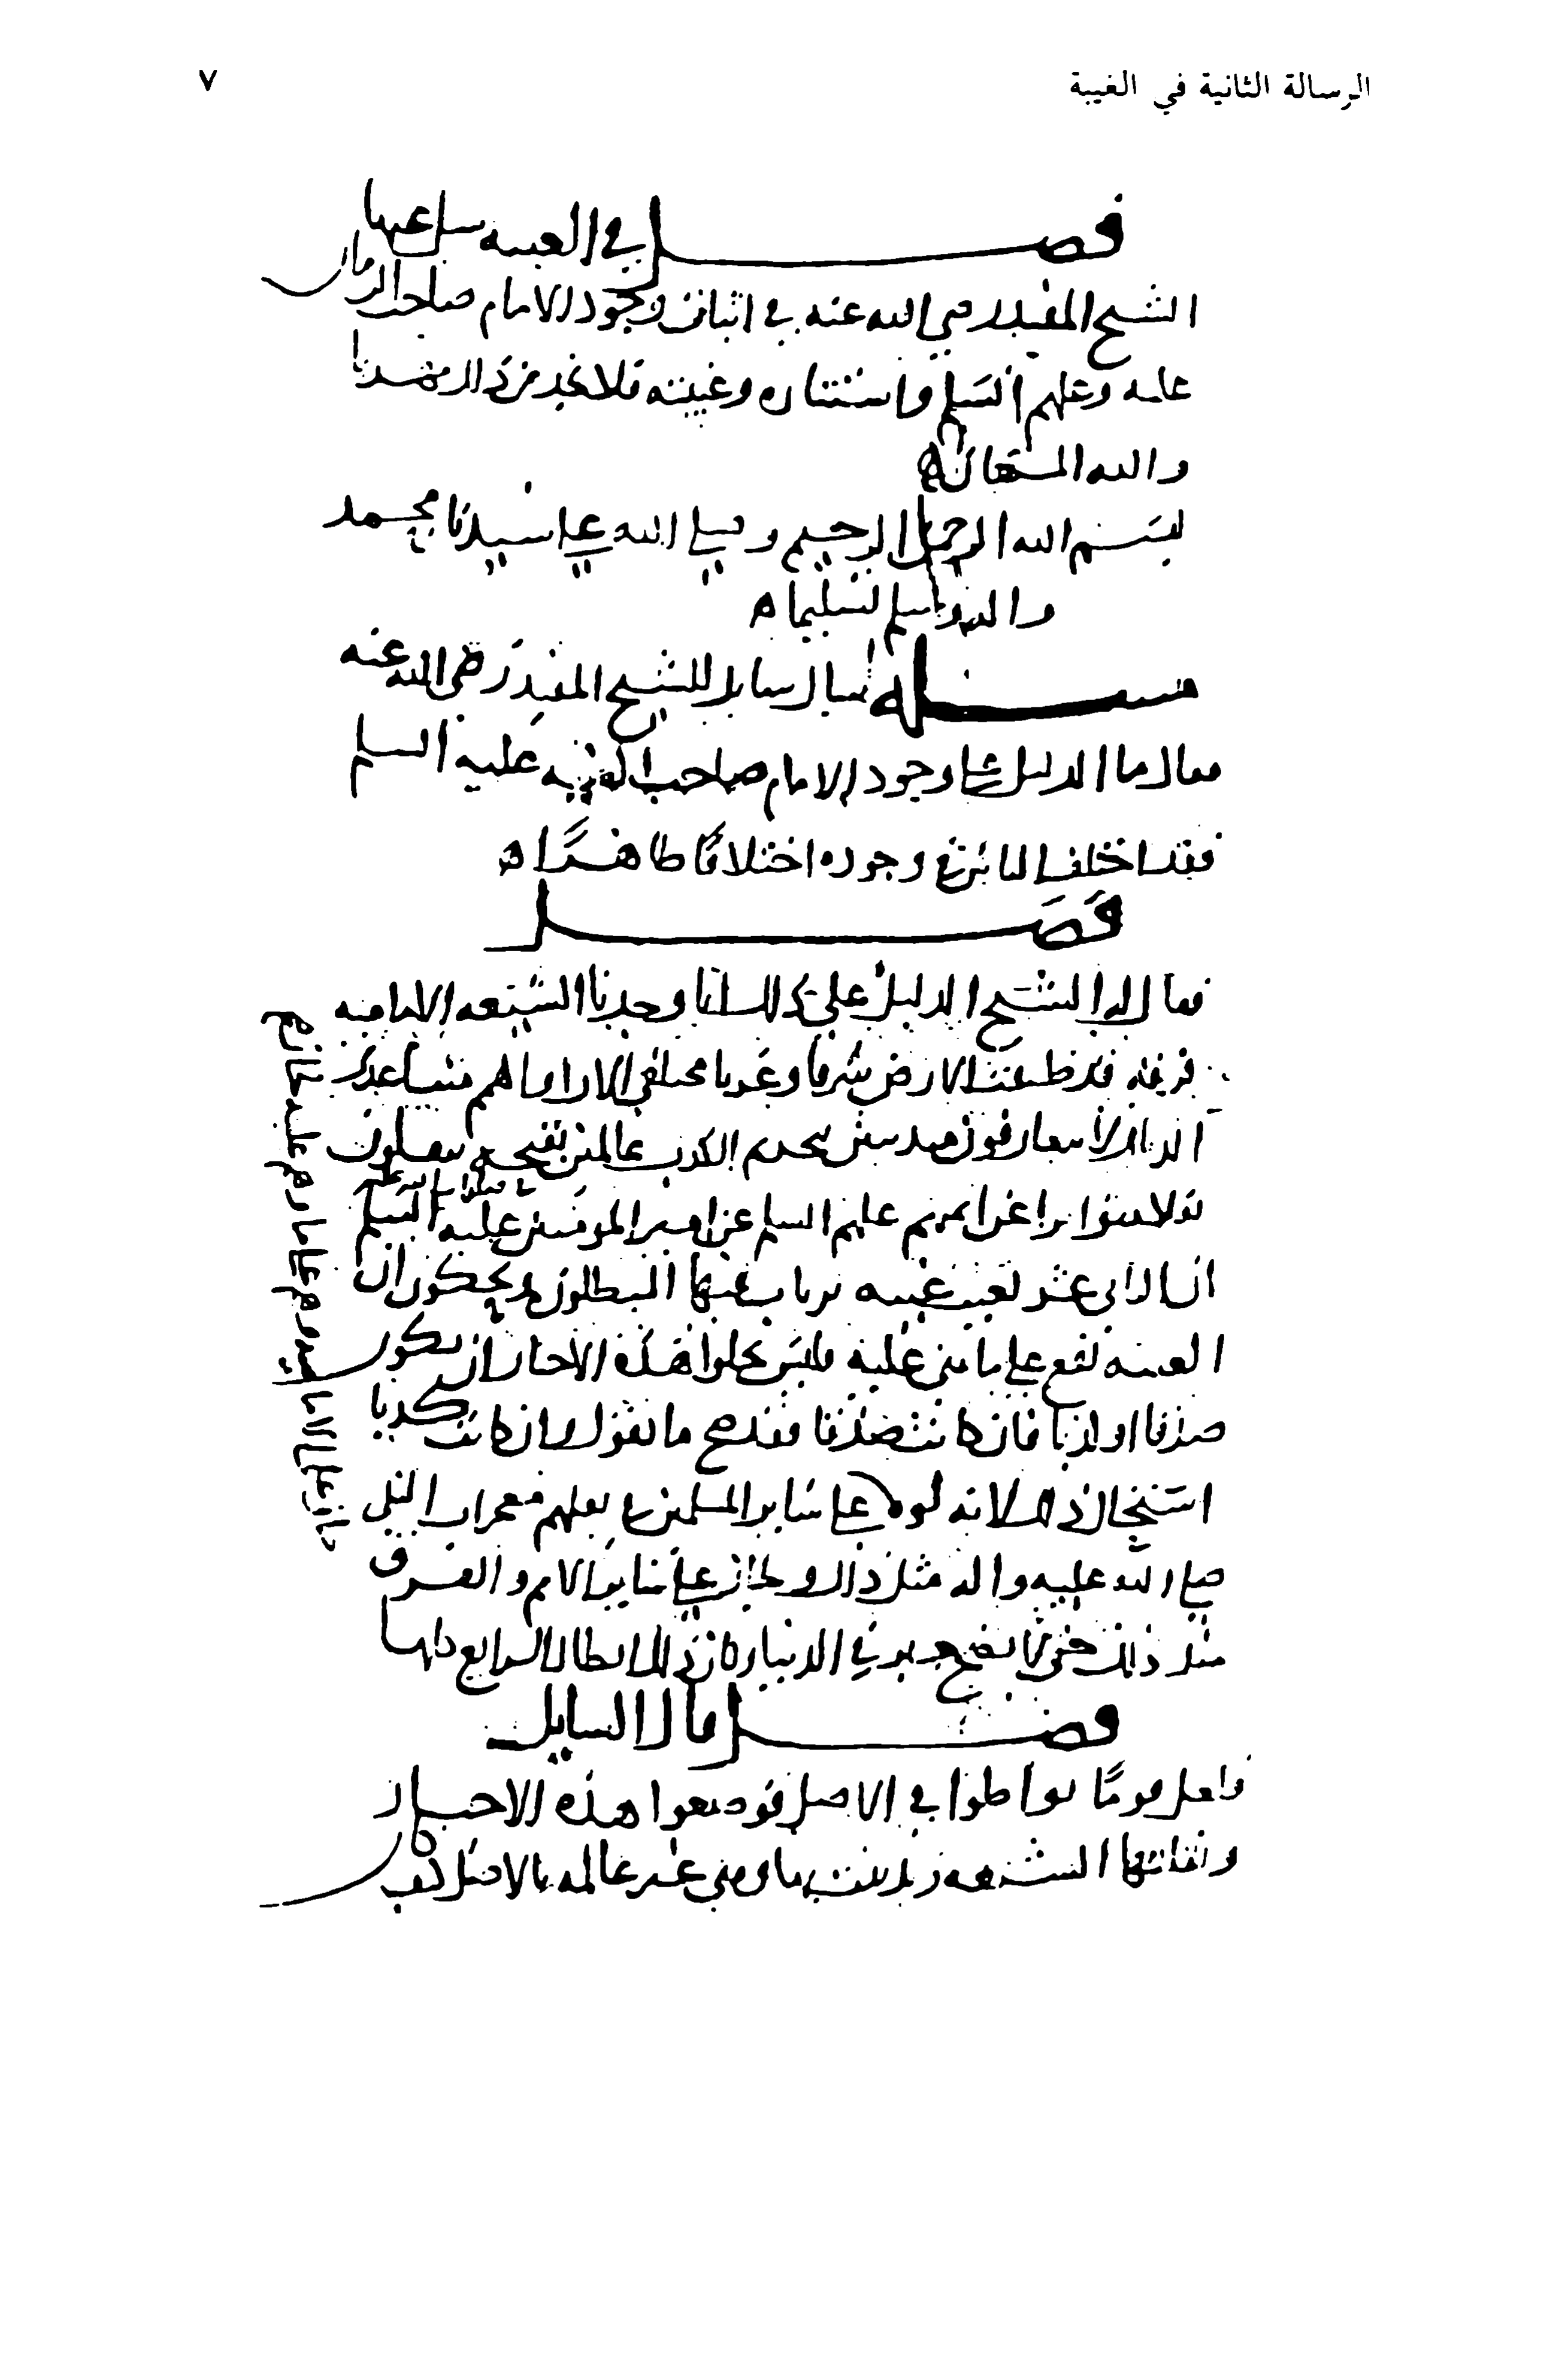 الرسالة الثانية في الغيبة
٧
فصل في الغيبة سئل عنها
الشيخ المفيد رضي الله عنه في اثبات وجود الامام صاحب الزمان
عليه وعليهم السلم واستتاره وغيبته
والله المستعان
بسم الله الرحمن الرحيم وصلى الله على سيدنا محمد
واله وسلم تسليما
مسئلة سال سايل للشيخ المفيد رضي الله عنه
فقال ما الدليل على وجود الامام صاحب الغيبة عليه السلم
فقد اختلف الناس في وجوده اختلافا ظاهرا
فصل
فقال له الشيخ الدليل على ذلك انا وجدنا الشيعه الاماميه
فرقه قد طبقت الارض شرقا وغربا مختلفي الارا والهمم متباعدي
الديار لا يتعارفون متدينين بتحريم الكذب عالمين بقبحه ينقلون
نقلا متواترا عن ايمتهم عليهم السلم عن امير المومنين عليه السلم
ان الثاني عشر يغيب غيبه يرتاب فيها المبطلون
الغيبه تقع على ما هي عليه فليس تخلوا هذه الاخبار ان تكون
صدقا او كذبا فان كانت صدقا فقد صح ما نقول وان كانت كذبا
استحال ذلك لانه لو جاز على ساير المسلمين في نقلهم معجزات النبي
صلى الله عليه واله مثل ذلك ولجاز على ساير الامم والفرق
مثله ذلك حتى لا يصح خبر في الدنيا وكان ذلك ابطال الشرايع كلها
فصل قال السايل
فلعل قوما تواطوا في الاصل فوضعوا هذه الاخبار
ونقلتها الشيعه وتدينت بها وهي غير عالمه بالاصل كيف كان